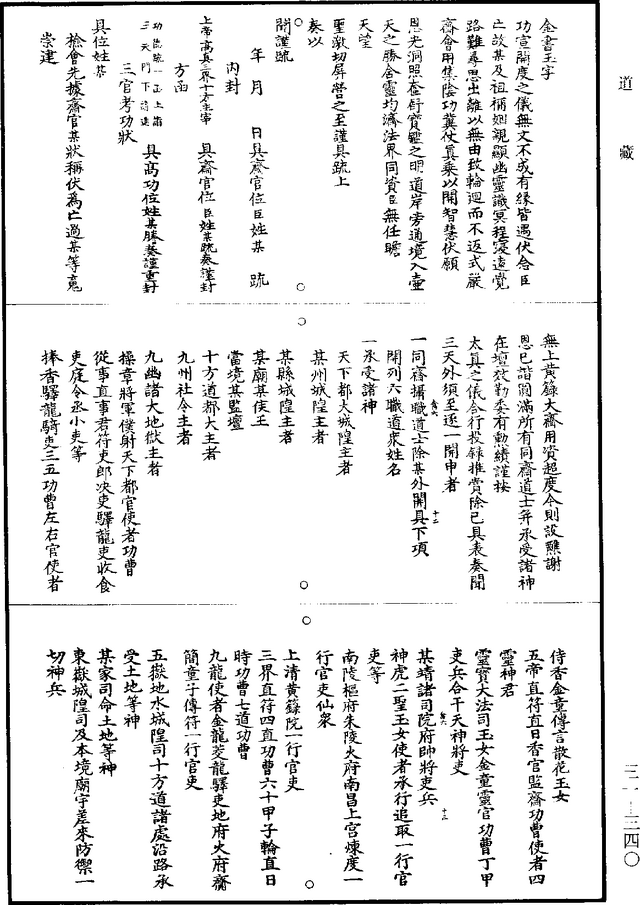 道藏
金書玉字
功宣開度之儀無文不成有緣皆遇伏念臣
亡故某及祖禰姻親顯幽靈識冥程寖遠覺
路難尋思出離以無由致輪迴而不返式嚴
齋會用集陰功冀仗真乘以開智慧伏願
恩光洞照在舒寶鑑之明道岸旁通境入壺
天之勝含靈均濟法界同資臣無任瞻
天望
聖激切屏營之至謹具疏上
奏以
聞謹疏
年 月 日具齋官位臣姓某 疏
內封
上帝高真三界十方主宰 具齋官位臣姓某疏奏謹封
方函
三天門下請進 具高功位姓某謄奏謹重封
三官考功狀
具位姓某
檢會先據齋官某狀稱伏為亡過某等魂
崇建
無上黃籙大齋用資超度今則設醮謝
恩已諧圓滿所有同齋道士并承受諸神
在壇效勤委有勳績謹按
太真之儀合行投錄推賞除已具表奏聞
三天外須至逐一開申者
一同齋攝職道士除某外開具下項
開列六職道衆姓名
一承受諸神
天下都大城隍主者
某州城隍主者
某縣城隍主者
某廟某侯王
當境某監壇
十方道都大主者
九州社令主者
九幽諸大地獄主者
操章將軍僕射天下都官使者功曹
從事直事君符吏郎决吏驛龍吏收食
吏庭令丞小吏等
捧香驛龍騎吏三五功曹左右官使者
侍香金童傳言散花玉女
五帝直符直日香官監齋功曹使者四
靈神君
靈寶大法司玉女金童靈官功曹丁甲
吏兵合干天神將吏
某靖諸司院府帥將吏兵
神虎二聖玉女使者承行追取一行官
吏等
南陵樞府朱陵火府南昌上宮煉度一
行官吏仙衆
上清黃籙院一行官吏
三界直符四直功曹六十甲子輪直日
時功曹七道功曹
九龍使者金龍茭龍驛吏地府火府齋
簡童子傳符一行官吏
五嶽地水城隍司十方道諸處沿路承
受土地等神
某家司命土地等神
東嶽城隍司及本境廟宇差來防禦一
切神兵
三一—三四〇